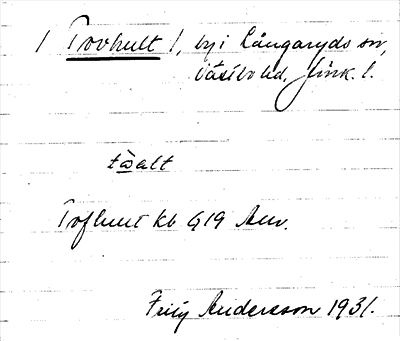 / Tovhult /, by i Långaryds sn,
Västbo hd, Jönk. l.
tòalt
Tofhult kb G19 Anv.
Fritz Andersson 1931.